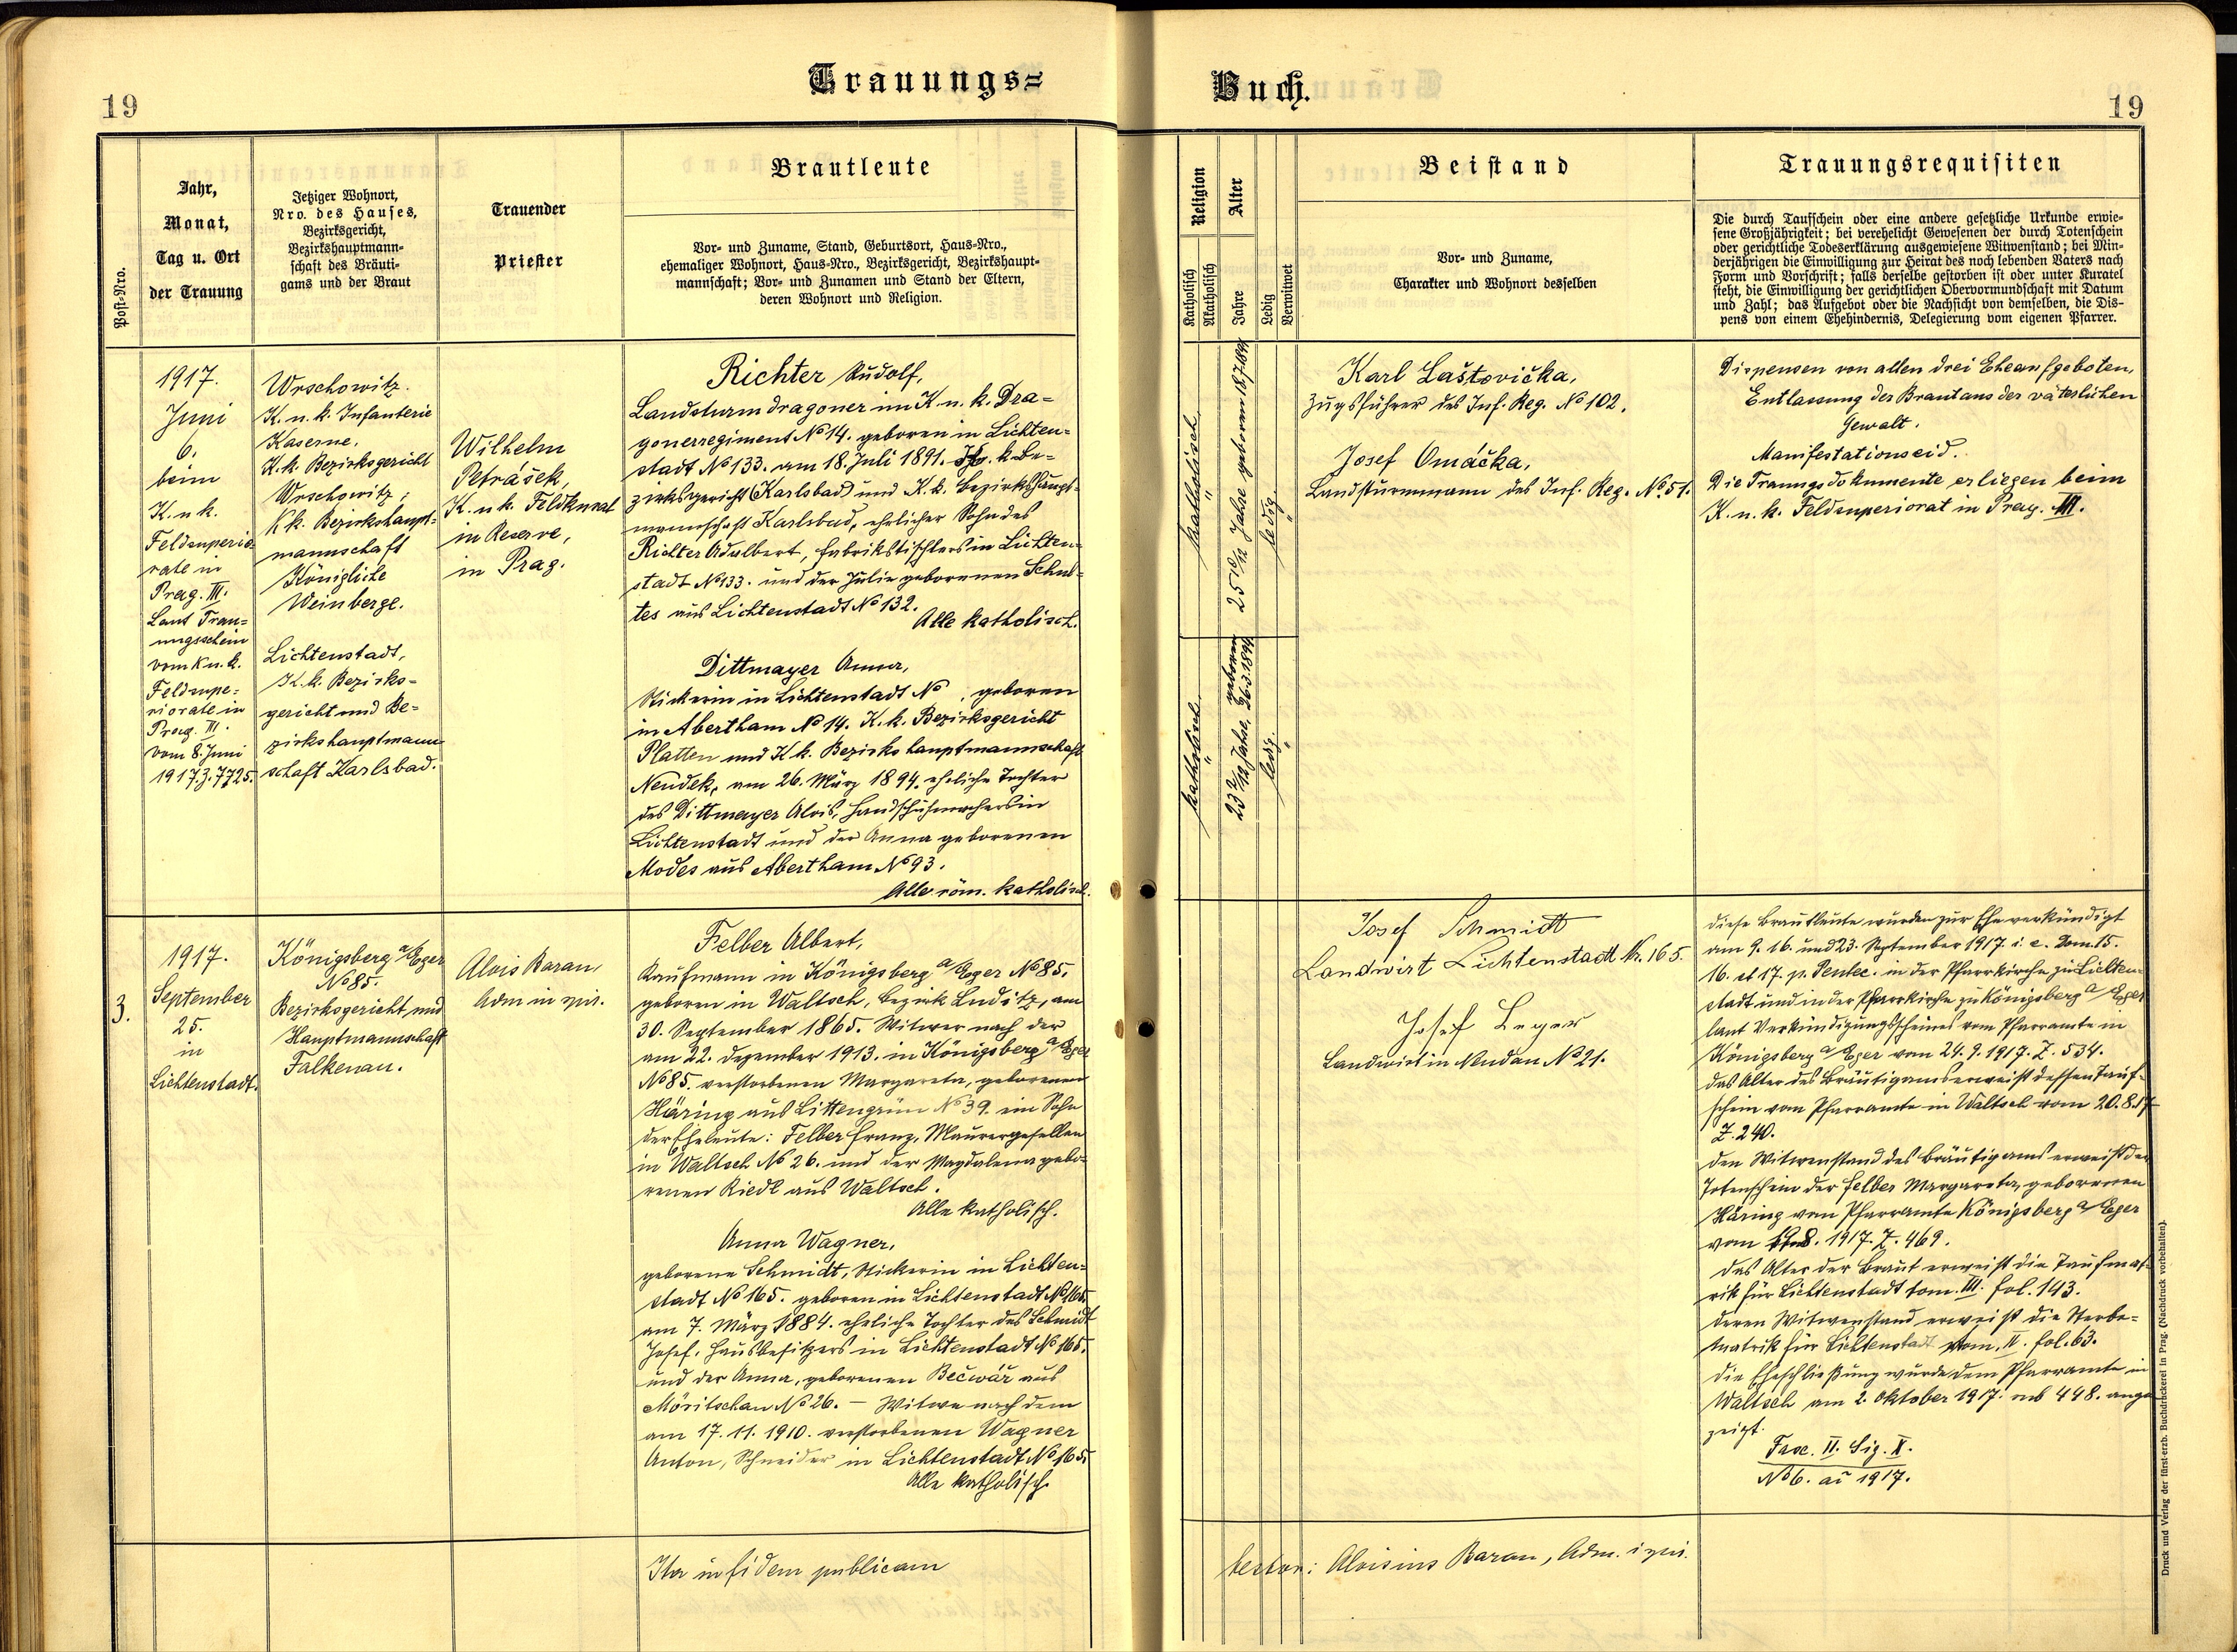 Trauungs=
Buch.
19
19
Post-Nro.
Jahr,
Monat,
Tag u. Ort
der Trauung
Jetziger Wohnort,
Nro. des Hauses,
Bezirksgericht,
Bezirkshauptmann-
schaft des Bräuti-
gams und der Braut
Trauender
Priester
Brautleute
Vor- und Zuname, Stand, Geburtsort, Haus-Nro.,
ehemaliger Wohnort, Haus-Nro., Bezirksgericht, Bezirkshaupt-
mannschaft; Vor- und Zunamen und Stand der Eltern,
deren Wohnort und Religion.
Religion
Katholisch
Akatholisch
Alter
Jahre
Ledig
Verwitwet
Beistand
Vor- und Zuname,
Charakter und Wohnort desselben
Trauungsrequisiten
Die durch Taufschein oder eine andere gesetzliche Urkunde erwie-
sene Großjährigkeit; bei verehelicht Gewesenen der durch Totenschein
oder gerichtliche Todeserklärung ausgewiesene Witwenstand; bei Min-
derjährigen die Einwilligung zur Heirat des noch lebenden Vaters nach
Form und Vorschrift; falls derselbe gestorben ist oder unter Kuratel
steht, die Einwilligung der gerichtlichen Obervormundschaft mit Datum
und Zahl; das Aufgebot oder die Nachsicht von demselben, die Dis-
pens von einem Ehehindernis, Delegierung vom eigenen Pfarrer.
1917.
Juni
6.
beim
K. u k.
Feldsuperio-
rate in
Prag. III.
Laut Trau=
ungsschein
vom K u. k.
Feldsupe=
riorate in
Prag. III.
vom 8. Juni
1917. Z. 7725.
Wrschowitz.
K. u. k. Infanterie
Kaserne.
K. k. Bezirksgericht
Wrschowitz;
K k. Bezirkshaupt=
mannschaft
Königliche
Weinberge.
Lichtenstadt,
K. k. Bezirks=
gericht und Be=
zirkshauptmann
schaft Karlsbad.
Wilhelm
Petrášek,
K. u k. Feldkurat
in Reserve,
in Prag.
Richter Rudolf,
Landsturmdragoner im K. u. k. Dra=
gonerregiment No 14. geboren in Lichten=
stadt No 133. am 18. Juli 1891. k. Be=
zirksgericht (Karlsbad) und K. k. Bezirkshaupt=
mannschaft Karlsbad, ehelicher Sohn des
Richter Adalbert, Fabrikstischlers in Lichten=
stadt No 133. und der Julie geborenen Schul=
tes aus Lichtenstadt No 132.
Alle katholisch.
Dittmayer Anna,
Stickerin in Lichtenstadt No , geboren
in Abertham No 14. K. k. Bezirksgericht
Platten und K k. Bezirkshauptmannschaft
Neudek, am 26. März 1894. eheliche Tochter
des Dittmayer Alois, Handschuhmachers in
Lichtenstadt und der Anna geborenen
Modes aus Abertham No 93.
Alle röm. katholisch.
katholisch.
"
25 10/12 Jahre geboren 18/7 1891
ledig
"
katholisch.
"
23 2/12 Jahre, geboren 26.3.1894
ledig.
"
Karl Laštovička,
Zugsführer des Inf. Reg. No 102.
Josef Omáčka,
Landsturmmann des Inf. Reg. No. 51.
Dispensen von allen drei Eheaufgeboten,
Entlassung der Braut aus der väterlichen
Gewalt.
Manifestationseid.
Die Trauungsdokumente erliegen beim
K. u. k. Feldsuperiorat in Prag. III.
3.
1917.
September
25.
in
Lichtenstadt.
Königsberg a/Eger
No 85.
Bezirksgericht, und
Hauptmannschaft
Falkenau.
Alois Baran,
Adm in spir.
Felber Albert,
Kaufmann in Königsberg a/Eger No 85.
geboren in Waltsch, Bezirk Luditz, am
30. September 1865. Witwer nach der
am 22. Dezember 1913. in Königsberg a/Eger
No 85. verstorbenen Margareta, geborenen
Häring aus Littengrün No 39. ein Sohn
der Eheleute: Felber Franz, Maurergesellen
in Waltsch No 26. und der Magdalena gebo-
renen Riedl aus Waltsch.
Alle katholisch.
Anna Wagner,
geborene Schmidt, Stickerin in Lichten=
stadt No 165. geboren in Lichtenstadt No 165.
am 7. März 1884. eheliche Tochter des Schmidt
Josef, Hausbesitzers in Lichtenstadt No 165.
und der Anna, geborenen Bečwář aus
Möritschau No 26. — Witwe nach dem
am 17. 11. 1910. verstorbenen Wagner
Anton, Schneider in Lichtenstadt No 165.
Alle katholisch.
Josef Schmidt
Landwirt Lichtenstadt N. 165.
Josef Leger
Landwirt in Neudau No 21.
Diese Brautleute wurden zur Ehe verkündigt
am 9. 16. und 23. September 1917. i. e. Dom. 15.
16. et 17. p. Pentec. in der Pfarrkirche zu Lichten=
stadt und in der Pfarrkirche zu Königsberg a/Eger
laut Verkündigungsscheines vom Pfarramte in
Königsberg a/Eger vom 24. 9. 1917. Z. 534.
Das Alter des Bräutigams erweist dessen Tauf-
schein vom Pfarramte in Waltsch vom 20. 8. 17
Z. 240.
Den Witwenstand des Bräutigams erweist der
Totenschein der Felber Margareta, geborenen
Häring vom Pfarramte Königsberg a/Eger
vom 8. 1917. Z. 469.
Das Alter der Braut erweist die Taufmat-
rik für Lichtenstadt tom. III. fol. 143.
Deren Witwenstand erweist die Sterbe=
matrik für Lichtenstadt tom. II. fol. 63.
Die Eheschließung wurde dem Pfarramte in
Waltsch am 2. Oktober 1917. sub 448. ange
zeigt.
Fasc. II. Sig. X.
No 6. ai 1917.
Ita in fidem publicam
testor: Aloisius Baran, Adm. i spir.
Druck und Verlag der fürst-erzb. Buchdruckerei in Prag. (Nachdruck vorbehalten).